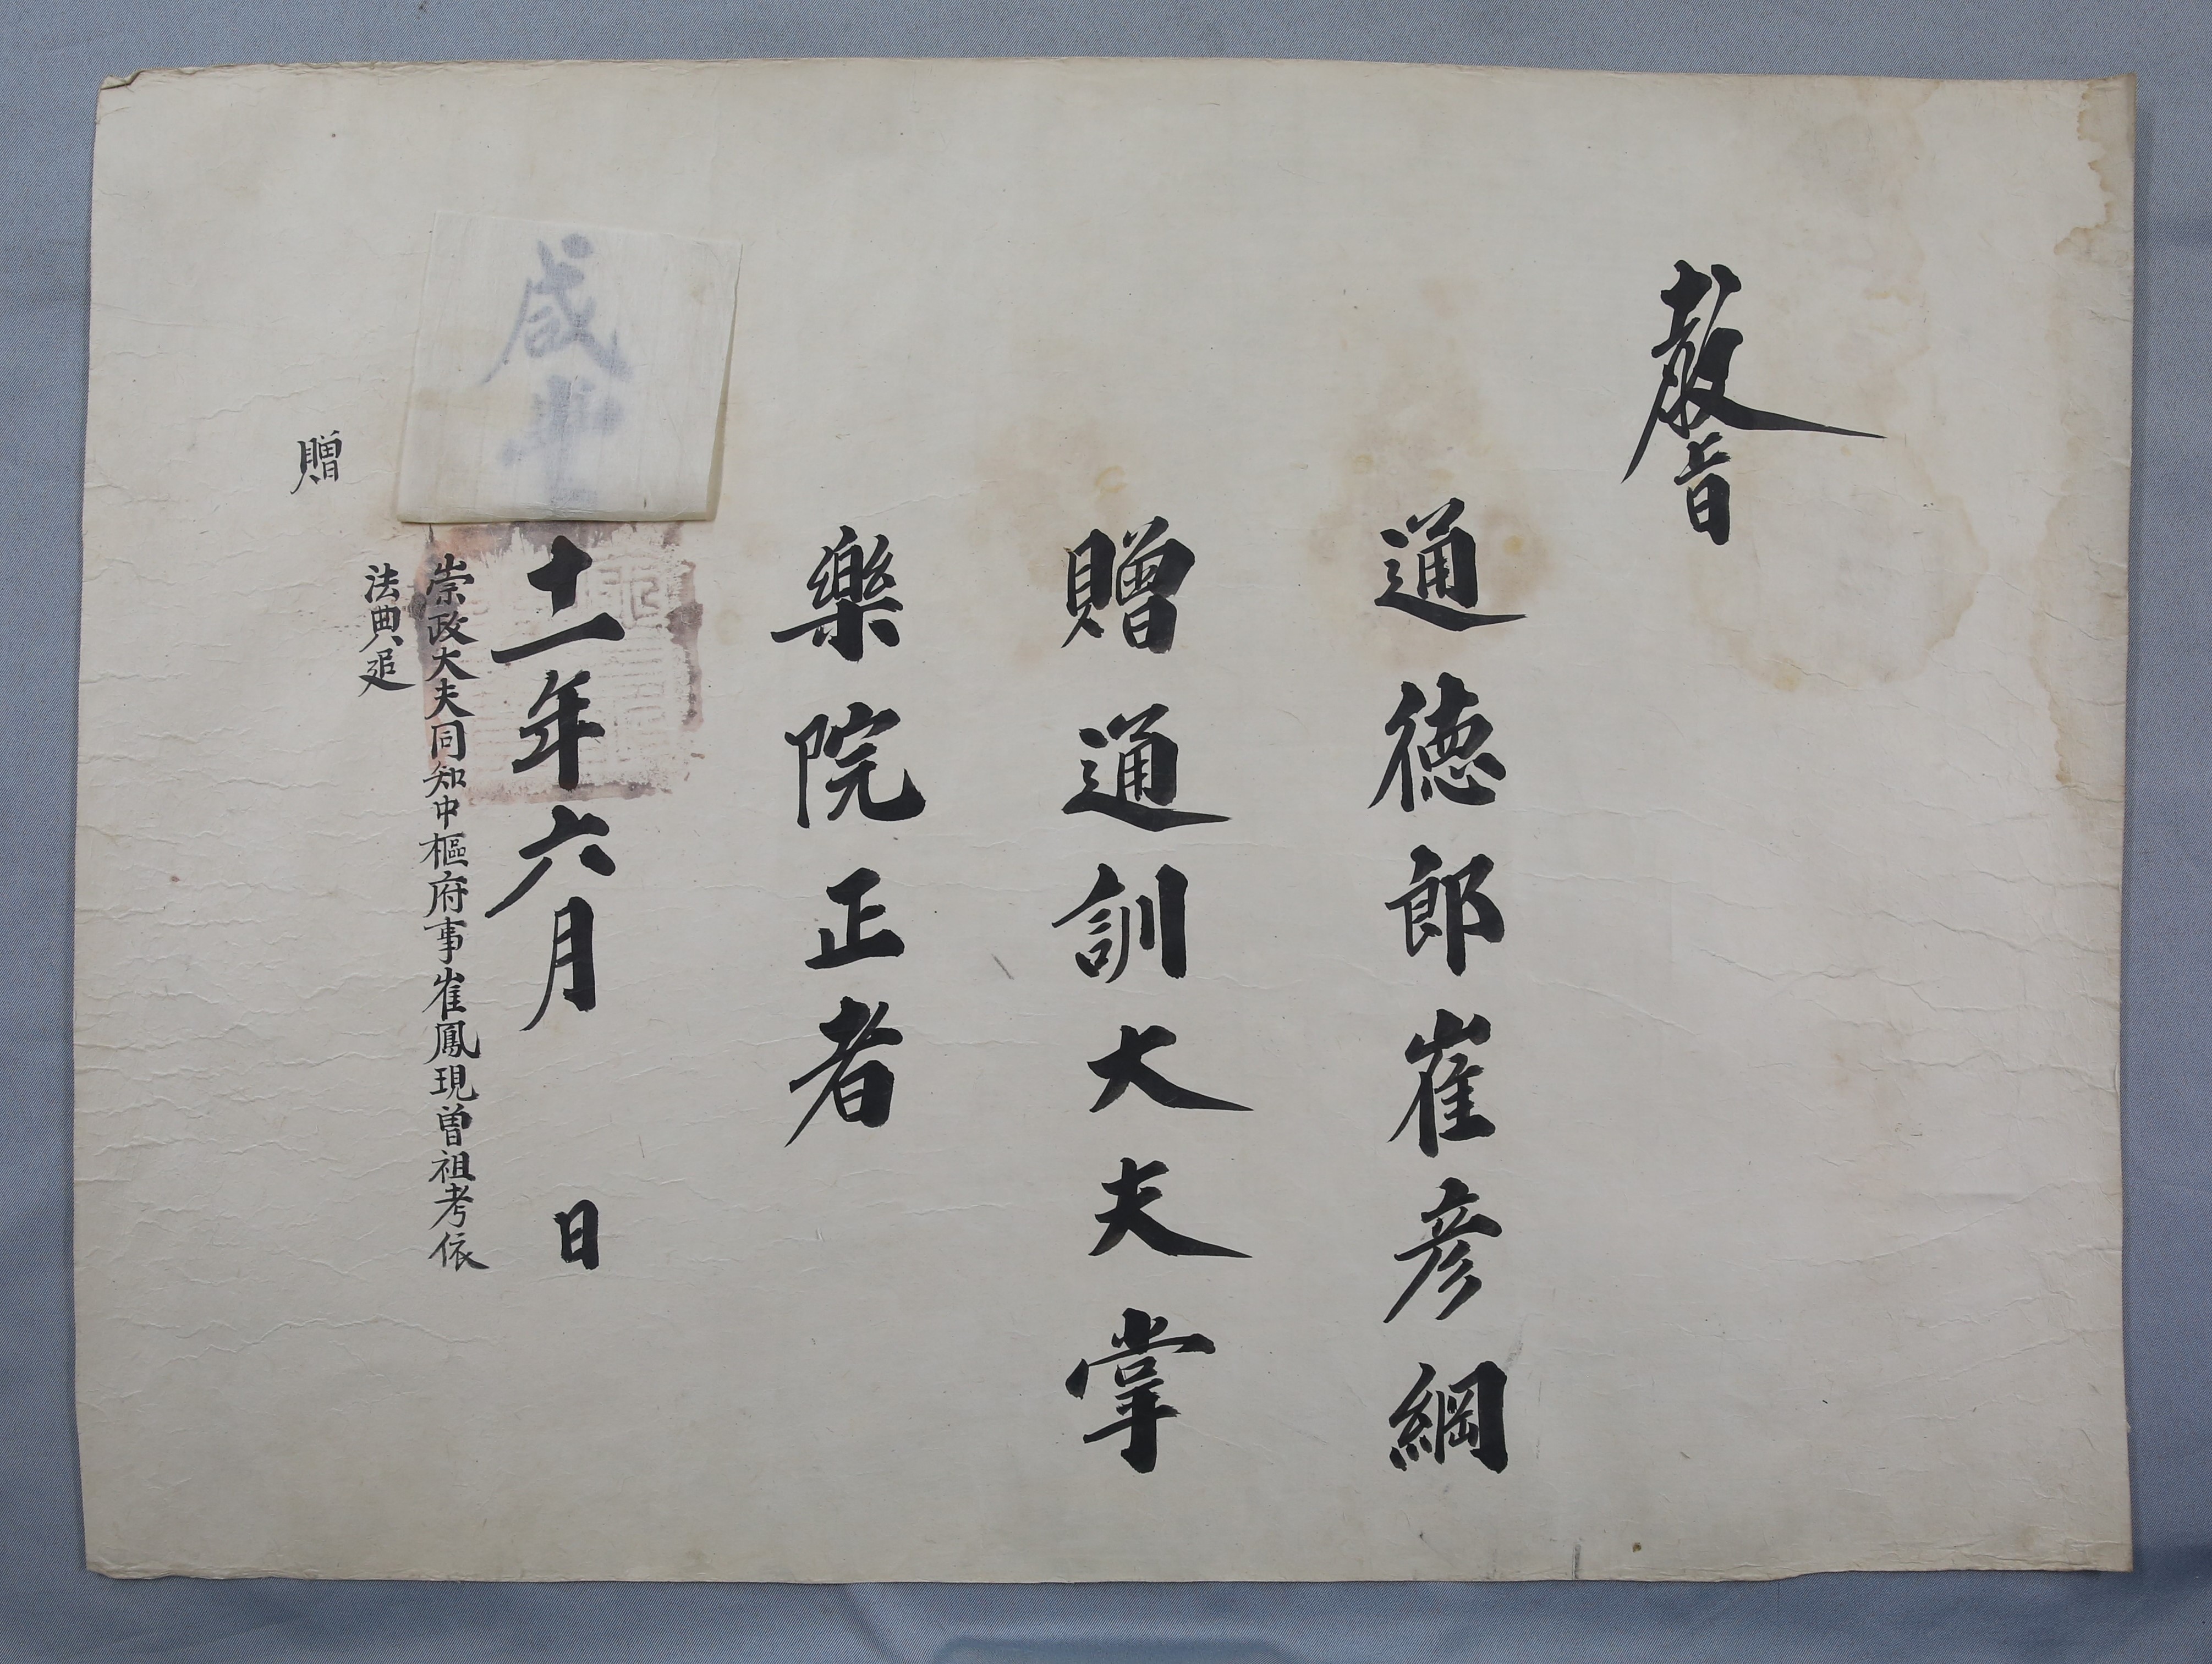 敎旨
通德郎崔彦綱
贈通訓大夫掌
樂院正者
咸豊十一年六月 日
崇政大夫同知中樞府事崔鳳現曽祖考依
法典追
贈